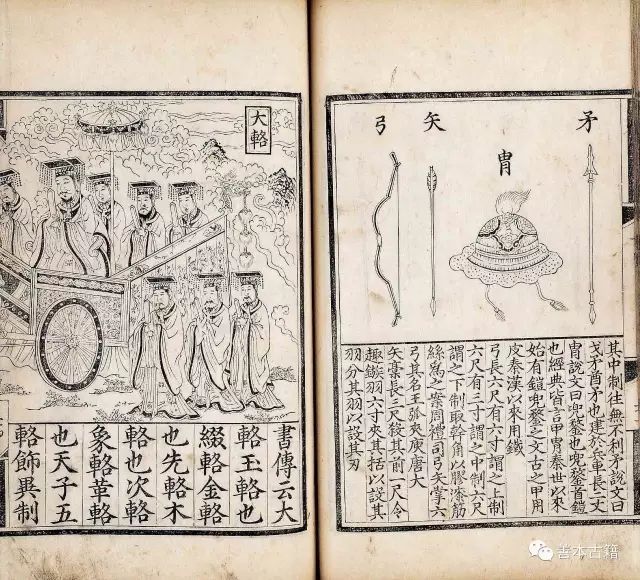 矛
冑
矢
弓
其中制往無不利矛說文曰
戈矛酋矛也建於兵車長二丈
冑說文曰兜鍪也兜鍪首鎧
也經典皆言甲冑秦世以來
始有鎧兜鍪之文古之甲用
皮秦漢以來用鐵
弓長六尺有六寸謂之上制
六尺有三寸謂之中制六尺
謂之下制取幹角以膠漆筋
絲為之案周禮司弓矢掌六
弓其名王弧夾庾唐大
矢槀長三尺殺其前一尺令
趣鏃羽六寸夾其括以設其
羽分其羽以設其刃
大輅
書傳云大
輅玉輅也
綴輅金輅
也先輅木
輅也次輅
象輅革輅
也天子五
輅飾異制
善本古籍